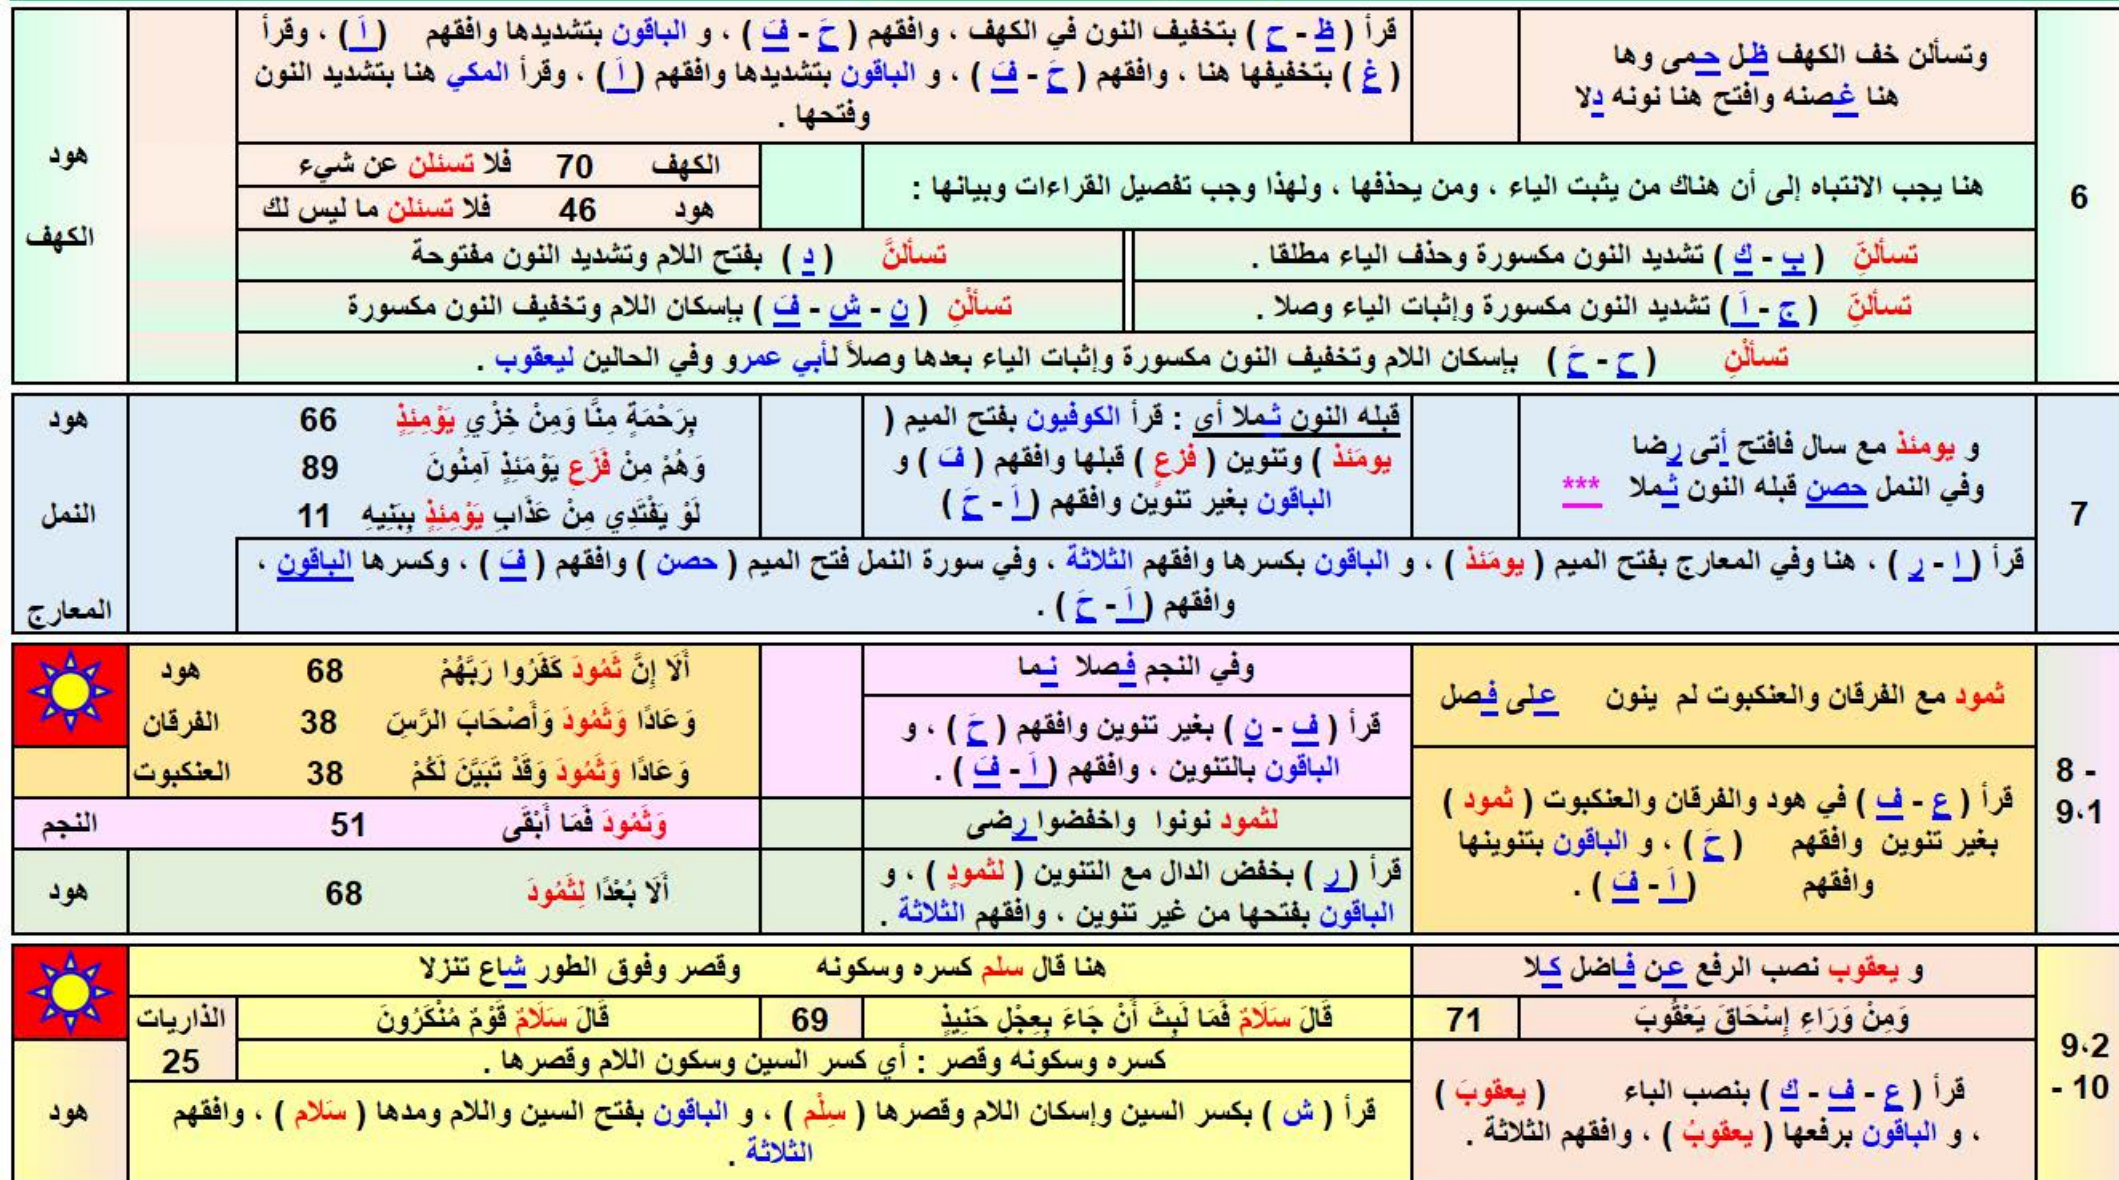 6
وتسألن خف الكهف ظل حمى وها
هنا غصنه وافتح هنا نونه دلا
قرأ ( ظ - ح ) بتخفيف النون في الكهف ، وافقهم ( حَ - فَ ) ، و الباقون بتشديدها وافقهم ( اَ ) ، وقرأ
( غ ) بتخفيفها هنا ، وافقهم ( حَ - فَ ) ، و الباقون بتشديدها وافقهم ( اَ ) ، وقرأ المكي هنا بتشديد النون
وفتحها .
هود
الكهف
هنا يجب الانتباه إلى أن هناك من يثبت الياء ، ومن يحذفها ، ولهذا وجب تفصيل القراءات وبيانها :
الكهف 70 فلا تسئلن عن شيء
هود 46 فلا تسئلن ما ليس لك
تسألنِّ ( ب - ك ) تشديد النون مكسورة وحذف الياء مطلقا .
تسألنَّ ( د ) بفتح اللام وتشديد النون مفتوحة
تسألنِّ ( ج - اَ ) تشديد النون مكسورة وإثبات الياء وصلا .
تسألْنِ ( ن - ش - فَ ) بإسكان اللام وتخفيف النون مكسورة
تسألْنِ ( ح - حَ ) بإسكان اللام وتخفيف النون مكسورة وإثبات الياء بعدها وصلاً لأبي عمرو وفي الحالين ليعقوب .
7
و يومئذ مع سال فافتح أتى رضا
وفي النمل حصن قبله النون ثملا ***
قبله النون ثملا أي : قرأ الكوفيون بفتح الميم (
يومَئذ ) وتنوين ( فزعٍ ) قبلها وافقهم ( فَ ) و
الباقون بغير تنوين وافقهم ( اَ - حَ )
بِرَحْمَةٍ مِنَّا وَمِنْ خِزْيِ يَوْمِئِذٍ 66 هود
وَهُمْ مِنْ فَزَعٍ يَوْمَئِذٍ آمِنُونَ 89 النمل
لَوْ يَفْتَدِي مِنْ عَذَابِ يَوْمِئِذٍ بِبَنِيهِ 11 المعارج
قرأ ( ا - ر ) ، هنا وفي المعارج بفتح الميم ( يومَئذ ) ، و الباقون بكسرها وافقهم الثلاثة ، وفي سورة النمل فتح الميم ( حصن ) وافقهم ( فَ ) ، وكسرها الباقون ،
وافقهم ( اَ - حَ ) .
8 -
9،1
ثمود مع الفرقان والعنكبوت لم ينون على فصل
قرأ ( ع - ف ) في هود والفرقان والعنكبوت ( ثمود )
بغير تنوين وافقهم ( حَ ) ، و الباقون بتنوينها
وافقهم ( اَ - فَ ) .
وفي النجم فصلا نما
قرأ ( ف - ن ) بغير تنوين وافقهم ( حَ ) ، و
الباقون بالتنوين ، وافقهم ( اَ - فَ ) .
لثمود نونوا واخفضوا رضى
قرأ ( ر ) بخفض الدال مع التنوين ( لثمودٍ ) ، و
الباقون بفتحها من غير تنوين ، وافقهم الثلاثة .
أَلَا إِنَّ ثَمُودَ كَفَرُوا رَبَّهُمْ 68 هود
وَعَادًا وَثَمُودَ وَأَصْحَابَ الرَّسِّ 38 الفرقان
وَعَادًا وَثَمُودَ وَقَدْ تَبَيَّنَ لَكُمْ 38 العنكبوت
وَثَمُودَ فَمَا أَبْقَى 51 النجم
أَلَا بُعْدًا لِثَمُودَ 68 هود
9،2
10 -
و يعقوب نصب الرفع عن فاضل كلا
وَمِنْ وَرَاءِ إِسْحَاقَ يَعْقُوبَ 71
قرأ ( ع - ف - ك ) بنصب الباء ( يعقوبَ )
، و الباقون برفعها ( يعقوبُ ) ، وافقهم الثلاثة .
هنا قال سلم كسره وسكونه وقصر وفوق الطور شاع تنزلا
قَالَ سَلَامٌ فَمَا لَبِثَ أَنْ جَاءَ بِعِجْلٍ حَنِيذٍ 69
قَالَ سَلَامٌ قَوْمٌ مُنْكَرُونَ
الذاريات
25
كسره وسكونه وقصر : أي كسر السين وسكون اللام وقصرها .
قرأ ( ش ) بكسر السين وإسكان اللام وقصرها ( سِلْم ) ، و الباقون بفتح السين واللام ومدها ( سَلام ) ، وافقهم
الثلاثة .
هود